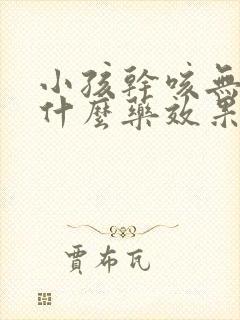 小孩幹咳無
什麼藥效果
賈布瓦